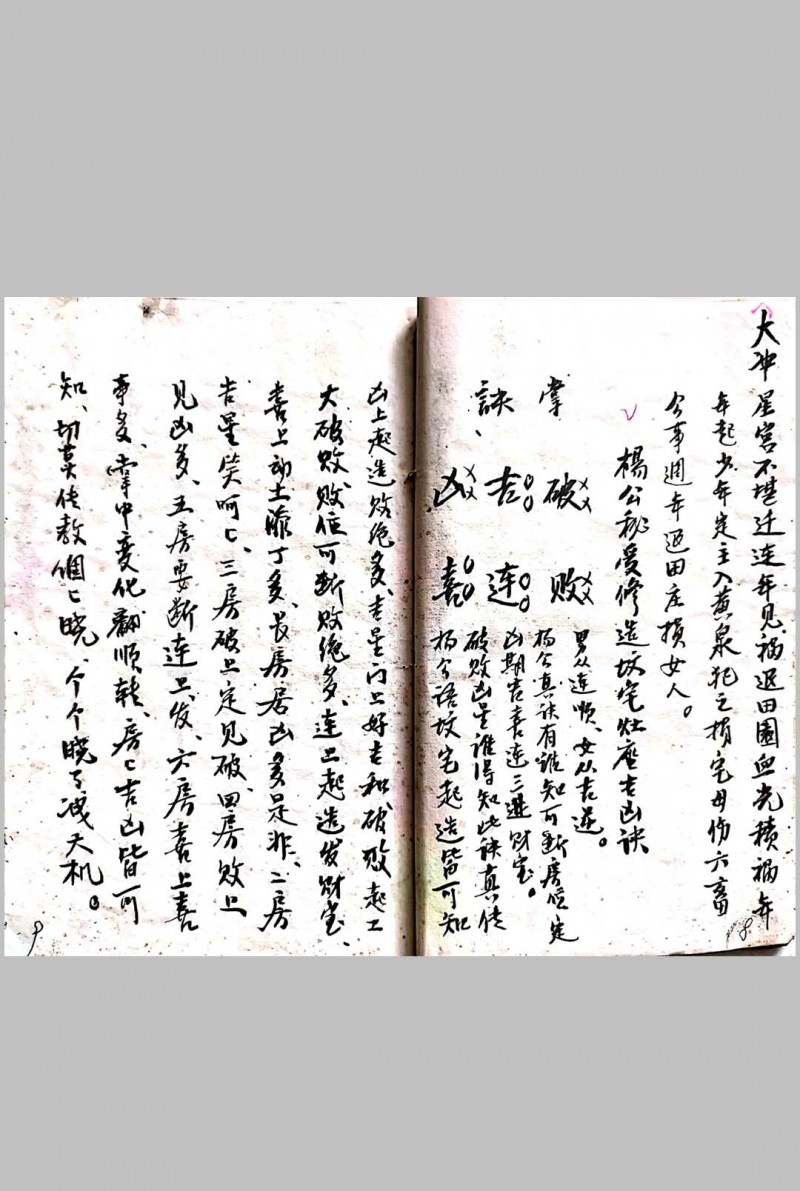 大冲星宫不堪迁连年见祸退田園血光積祸年
年起少年定主入黄泉犯之损宅母伤六畜
公事週年退田庄损女人。
楊公秘受修造坟宅灶座吉凶诀
掌
訣、
破××
吉○○
凶××
败××
連○○
喜○○
男从连顺、女从吉逆。
杨公真诀有谁知可断房位定
凶期吉喜連三进财宝。
破败凶星谁得知此诀真传
杨公语坟宅起造皆可知
凶上起造败绝多、吉星门上好吉和、破败起工
大破败、败位可断败绝多、連上起造发财宝、
喜上动土添丁多、長房居凶多是非、二房
吉星笑呵〻、三房破上定见破、四房败上
见凶多、五房要断連上发、六房喜上喜
事多、掌中变化翻顺转、房〻吉凶皆可
知、切莫传教個〻晓、个个晓了洩天机。
8.
9